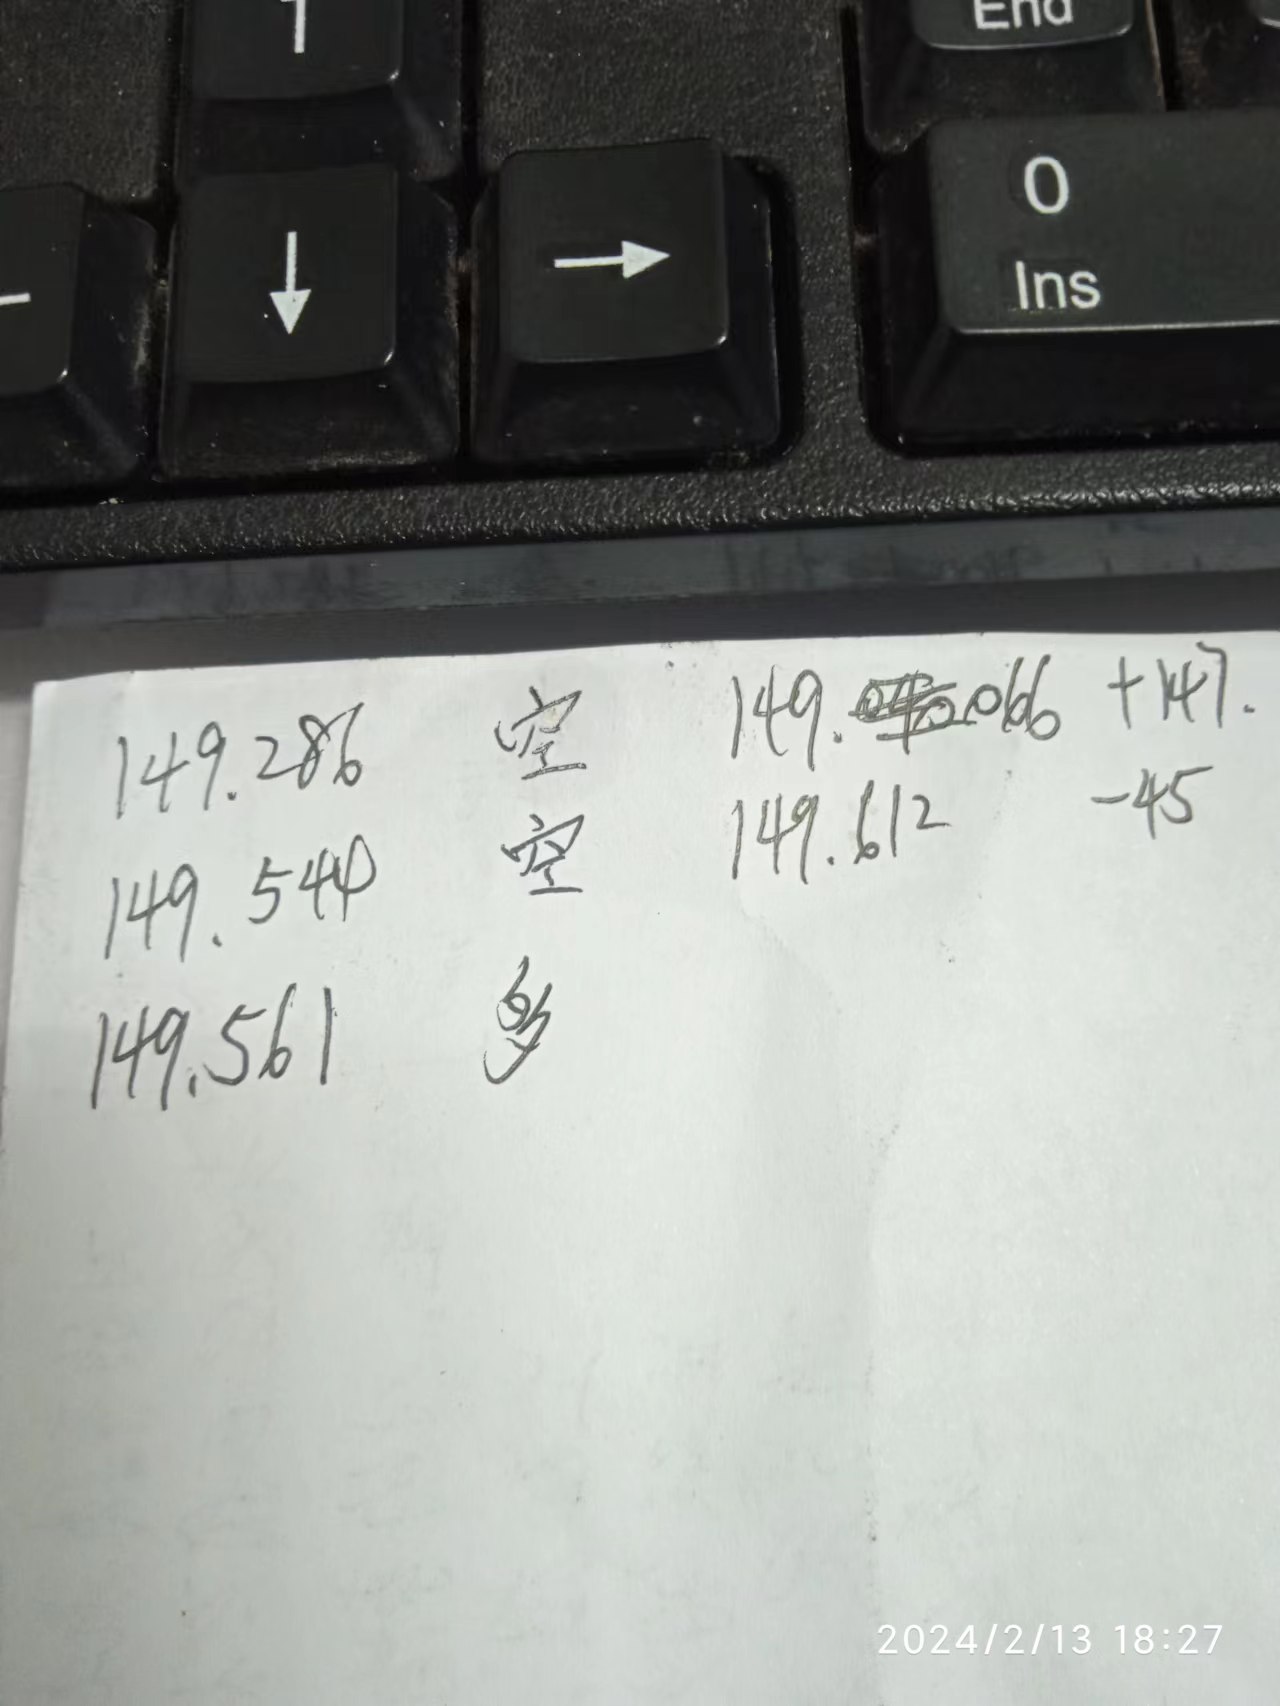 End
0
Ins
149.286 空 149.066 +147.
149.540 空 149.612 -45
149.561 多
2024/2/13 18:27